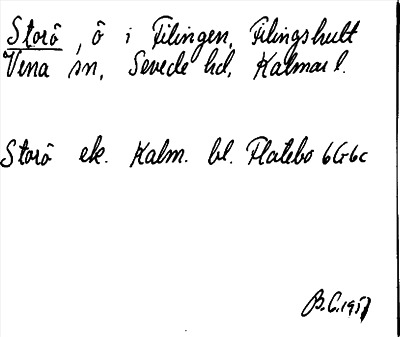 Storö, ö i Filingen, Filingshult
Vena sn, Sevede hd, Kalmar l.
Storö ek. Kalm. bl. Flatebo 6G6c
B.C. 1957